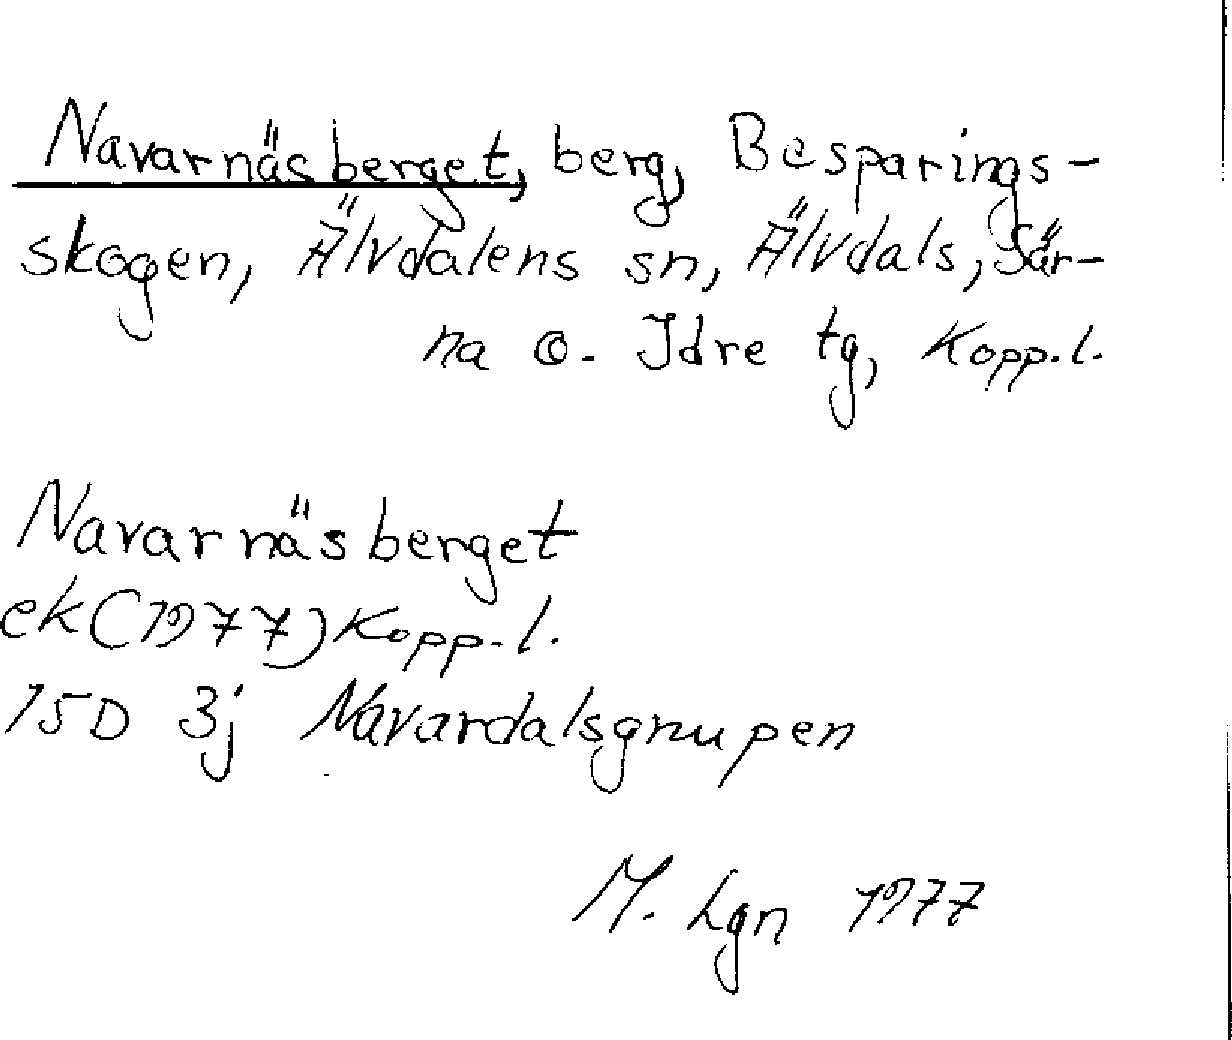 Navarnäsberget, berg, Besparings-
skogen, Älvdalens sn, Älvdals, Sär-
na o. Idre tg, Kopp.l.
Navarnäsberget
ek(1977)Kopp.l.
15D 3j Navardalsgnupen
M. Lgn 1977